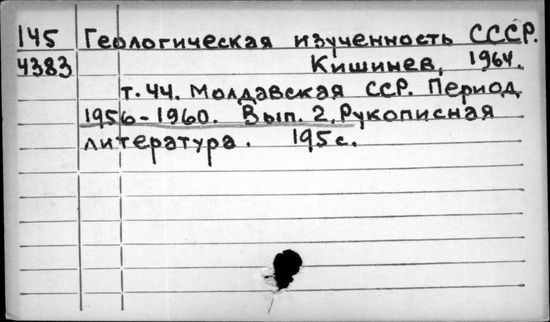 145 Геологическая изученность СССР.
4383 Кишинев, 1964.
т. 44. Молдавская ССР. Период
1956-1960. Вып. 2. Рукописная
литература. 195 с.